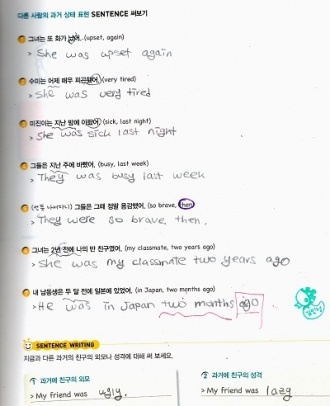 다른 사람의 과거 상태 표현 SENTENCE 써보기
그녀는 또 화가 났어. (upset, again)
> She was upset again
수미는 어제 매우 피곤했어. (very tired)
> She was very tired
미진이는 지난 밤에 아팠어. (sick, last night)
> She was sick last night
그들은 지난 주에 바빴어. (busy, last week)
> They was busy last week
그들은 그때 정말 용감했어. (so brave, then)
> They were so brave, then.
그녀는 2년 전에 나의 반 친구였어. (my classmate, two years ago)
> She was my classmate two years ago
내 남동생은 두 달 전에 일본에 있었어. (in Japan, two months ago)
> He was in Japan two months ago
SENTENCE WRITING
지금과 다른 과거의 친구의 외모나 성격에 대해 써 보세요.
과거에 친구의 외모
과거에 친구의 성격
> My friend was ugly.
> My friend was lazy